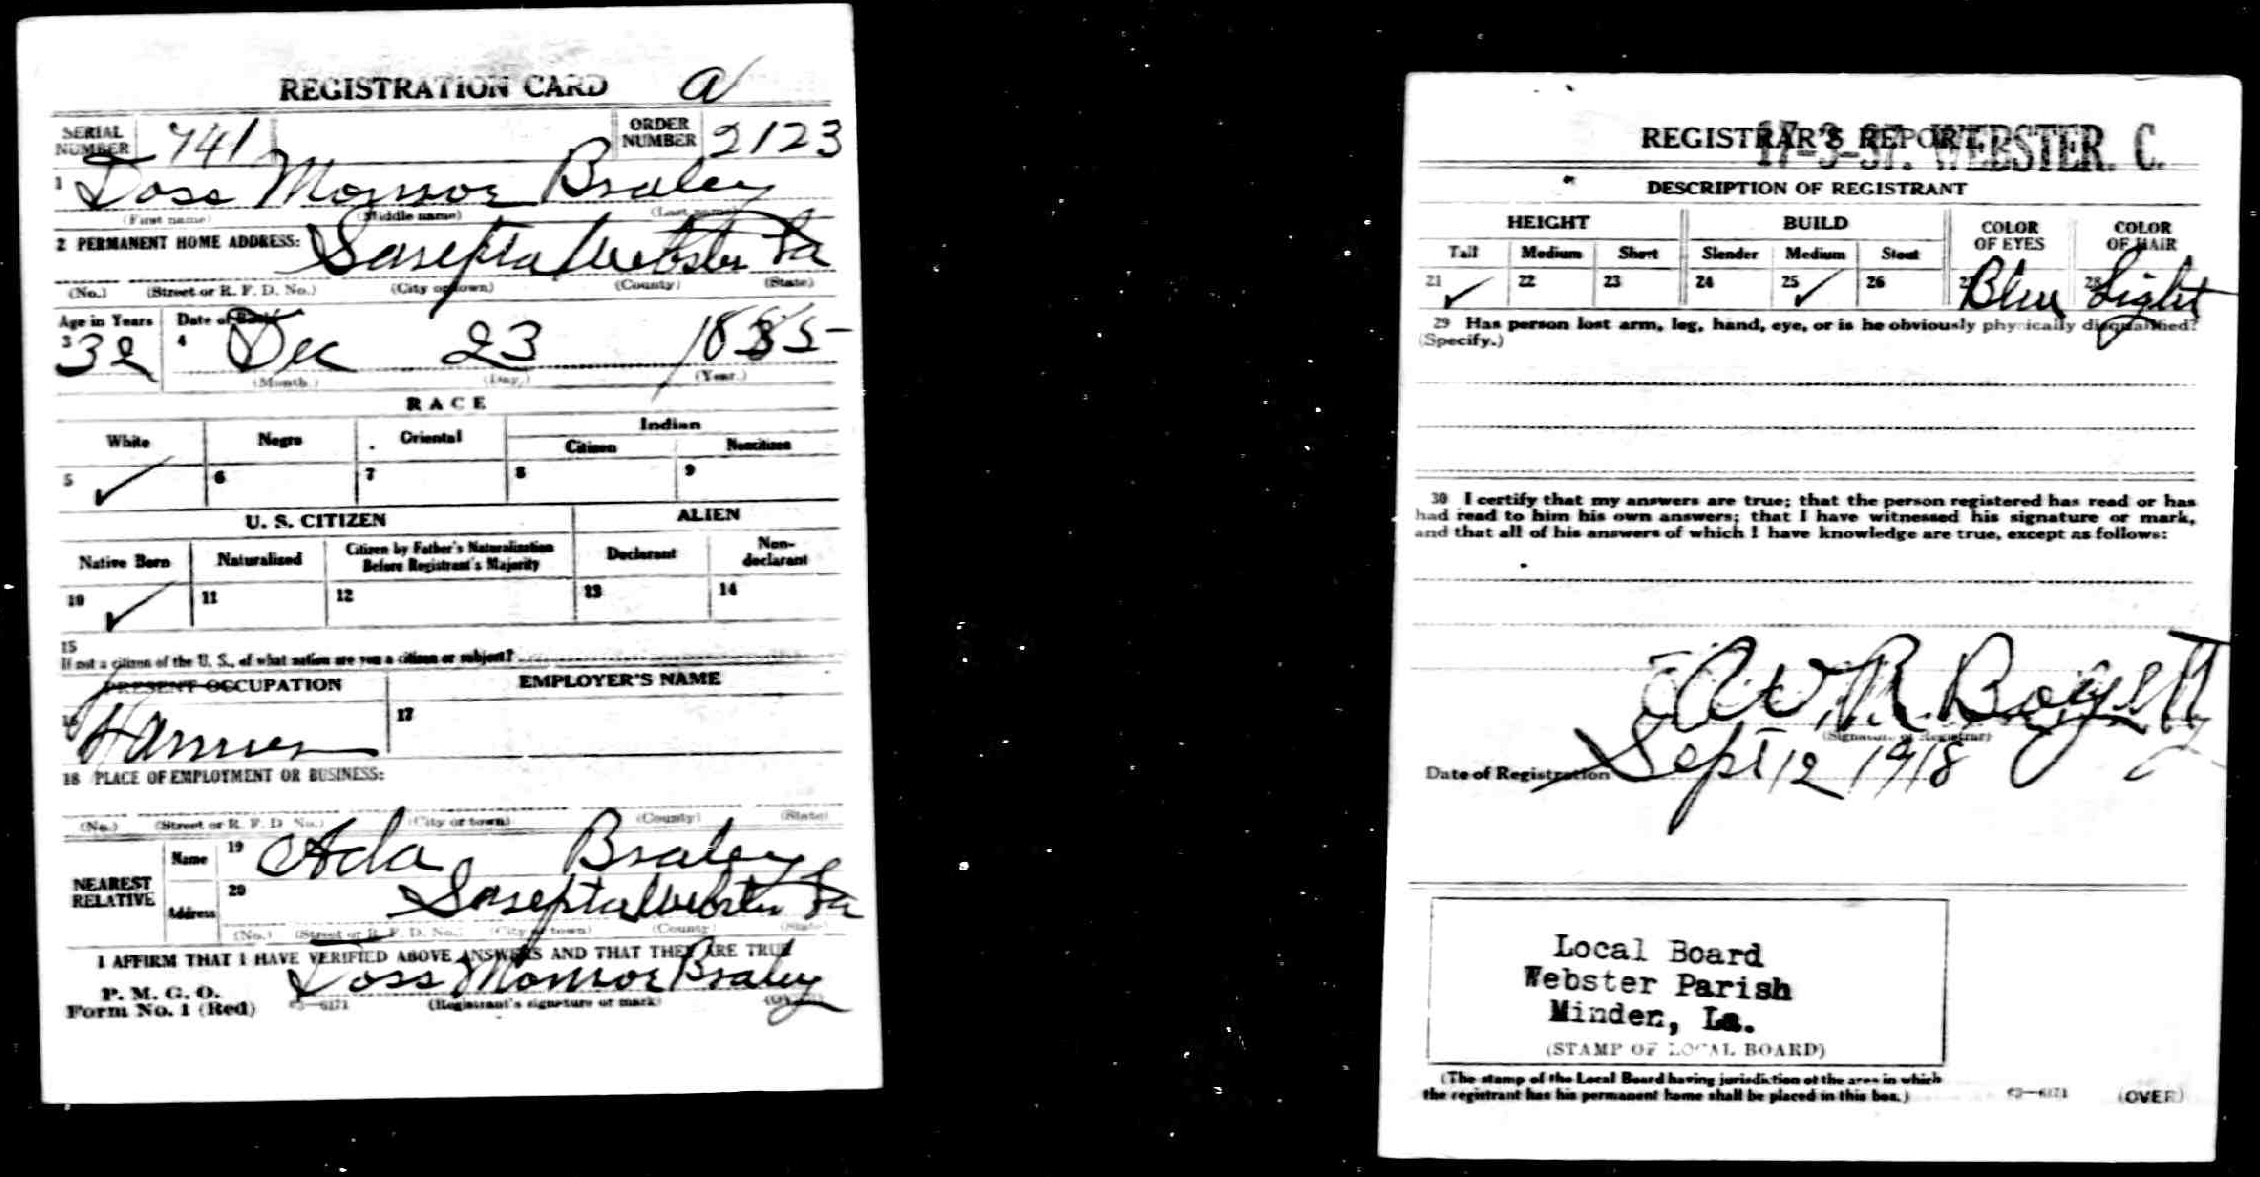 REGISTRATION CARD a
SERIAL NUMBER 741 ORDER NUMBER 2123
1 Doss Monroe Braley
(First name) (Middle name) (Last name)
2 PERMANENT HOME ADDRESS: Sarepta Webster La
(No.) (Street or R. F. D. No.) (City or town) (County) (State)
Age in Years Date of Birth
3 32 4 Dec 23 1885
(Month.) (Day.) (Year.)
RACE
White Negro Oriental Indian
Citizen Noncitizen
5 ✓ 6 7 8 9
U. S. CITIZEN ALIEN
Native Born Naturalized Citizen by Father's Naturalization Before Registrant's Majority Declarant Non-declarant
10 ✓ 11 12 13 14
15
If not a citizen of the U. S., of what nation are you a citizen or subject?
PRESENT OCCUPATION EMPLOYER'S NAME
16 Farmer 17
18 PLACE OF EMPLOYMENT OR BUSINESS:
(No.) (Street or R. F. D. No.) (City or town) (County) (State)
NEAREST RELATIVE Name 19 Ada Braley
Address 20 Sarepta Webster La
(No.) (Street or R. F. D. No.) (City or town) (County) (State)
I AFFIRM THAT I HAVE VERIFIED ABOVE ANSWERS AND THAT THEY ARE TRUE
P. M. G. O.
Form No. 1 (Red) Doss Monroe Braley
03—6171 (Registrant's signature or mark) (OVER)
REGISTRAR'S REPORT
17-3-37. WEBSTER. C.
DESCRIPTION OF REGISTRANT
HEIGHT BUILD COLOR OF EYES COLOR OF HAIR
Tall Medium Short Slender Medium Stout
21 ✓ 22 23 24 25 ✓ 26 27 Blue 28 Light
29 Has person lost arm, leg, hand, eye, or is he obviously physically disqualified?
(Specify.)
30 I certify that my answers are true; that the person registered has read or has
had read to him his own answers; that I have witnessed his signature or mark,
and that all of his answers of which I have knowledge are true, except as follows:
(Signature of Registrar)
Date of Registration Sept 12 1918
Local Board
Webster Parish
Minden, La.
(STAMP OF LOCAL BOARD)
(The stamp of the Local Board having jurisdiction of the area in which
the registrant has his permanent home shall be placed in this box.)
03—6171 (OVER)